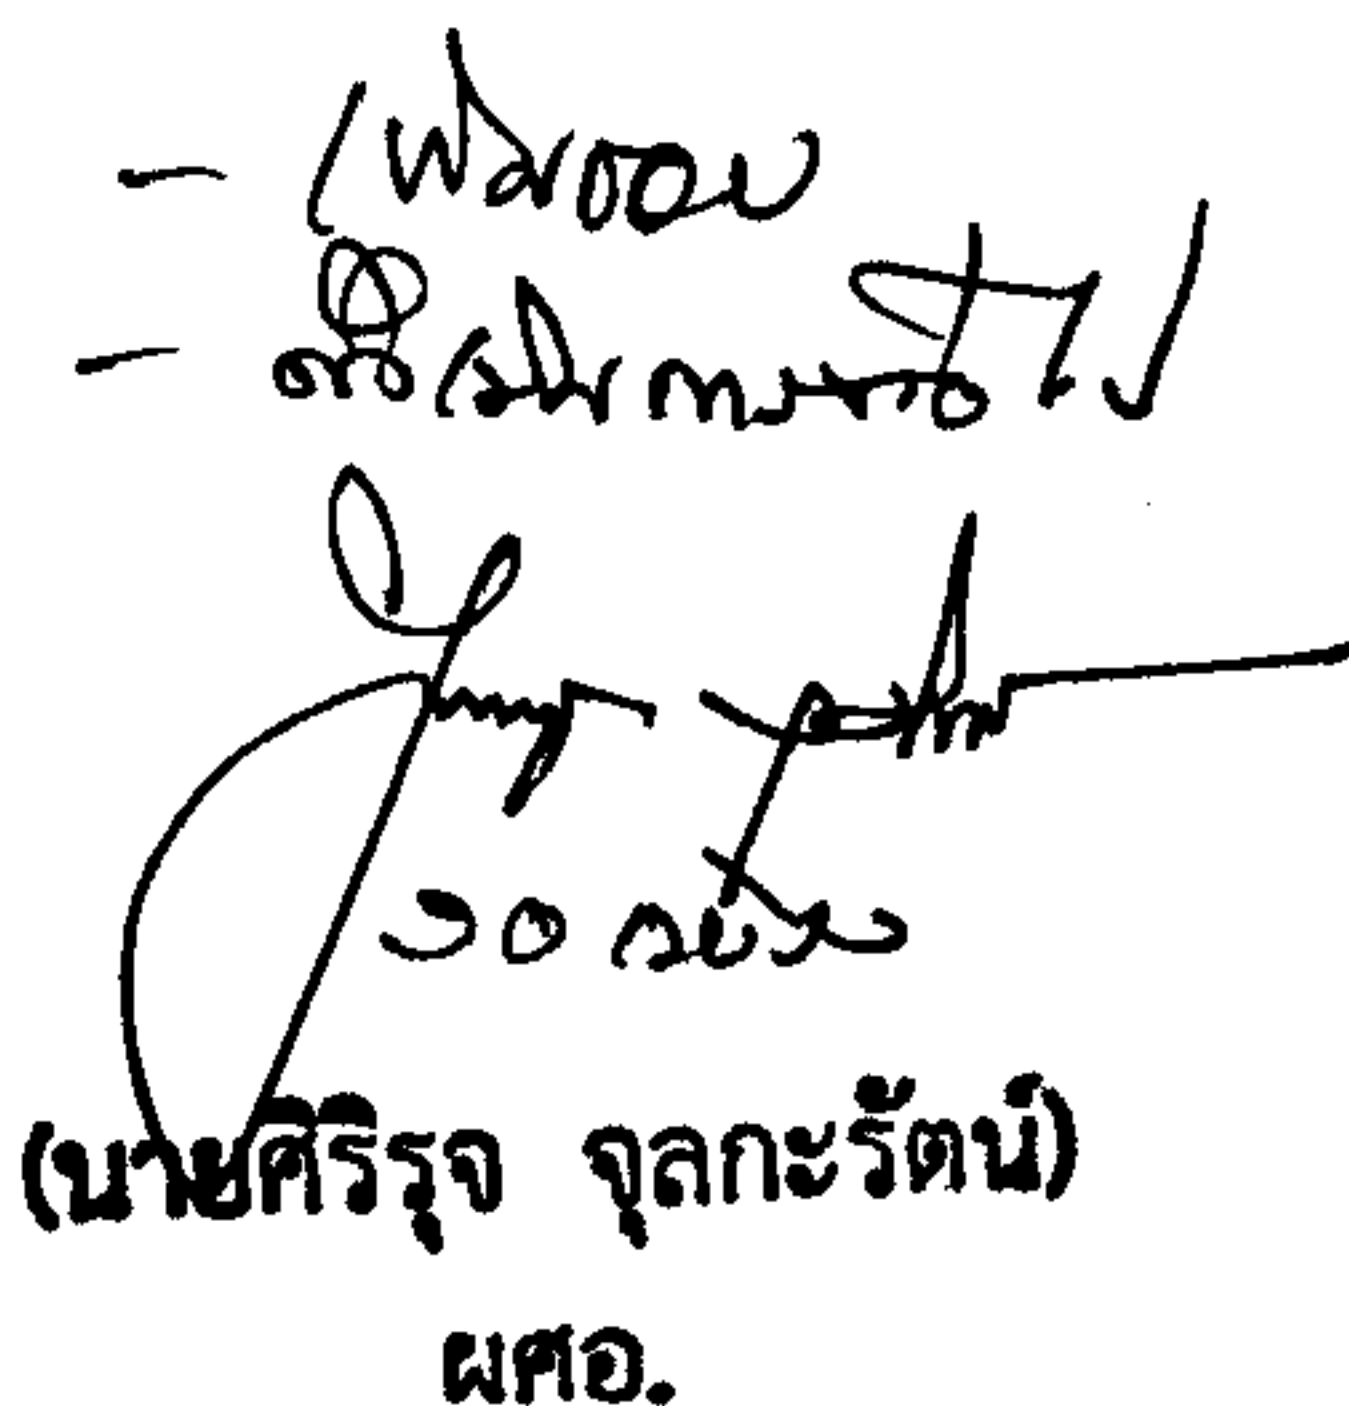 - เห็นชอบ
- ดำเนินการต่อไป
(นายศิริรุจ จุลกะรัตน์)
ผศอ.